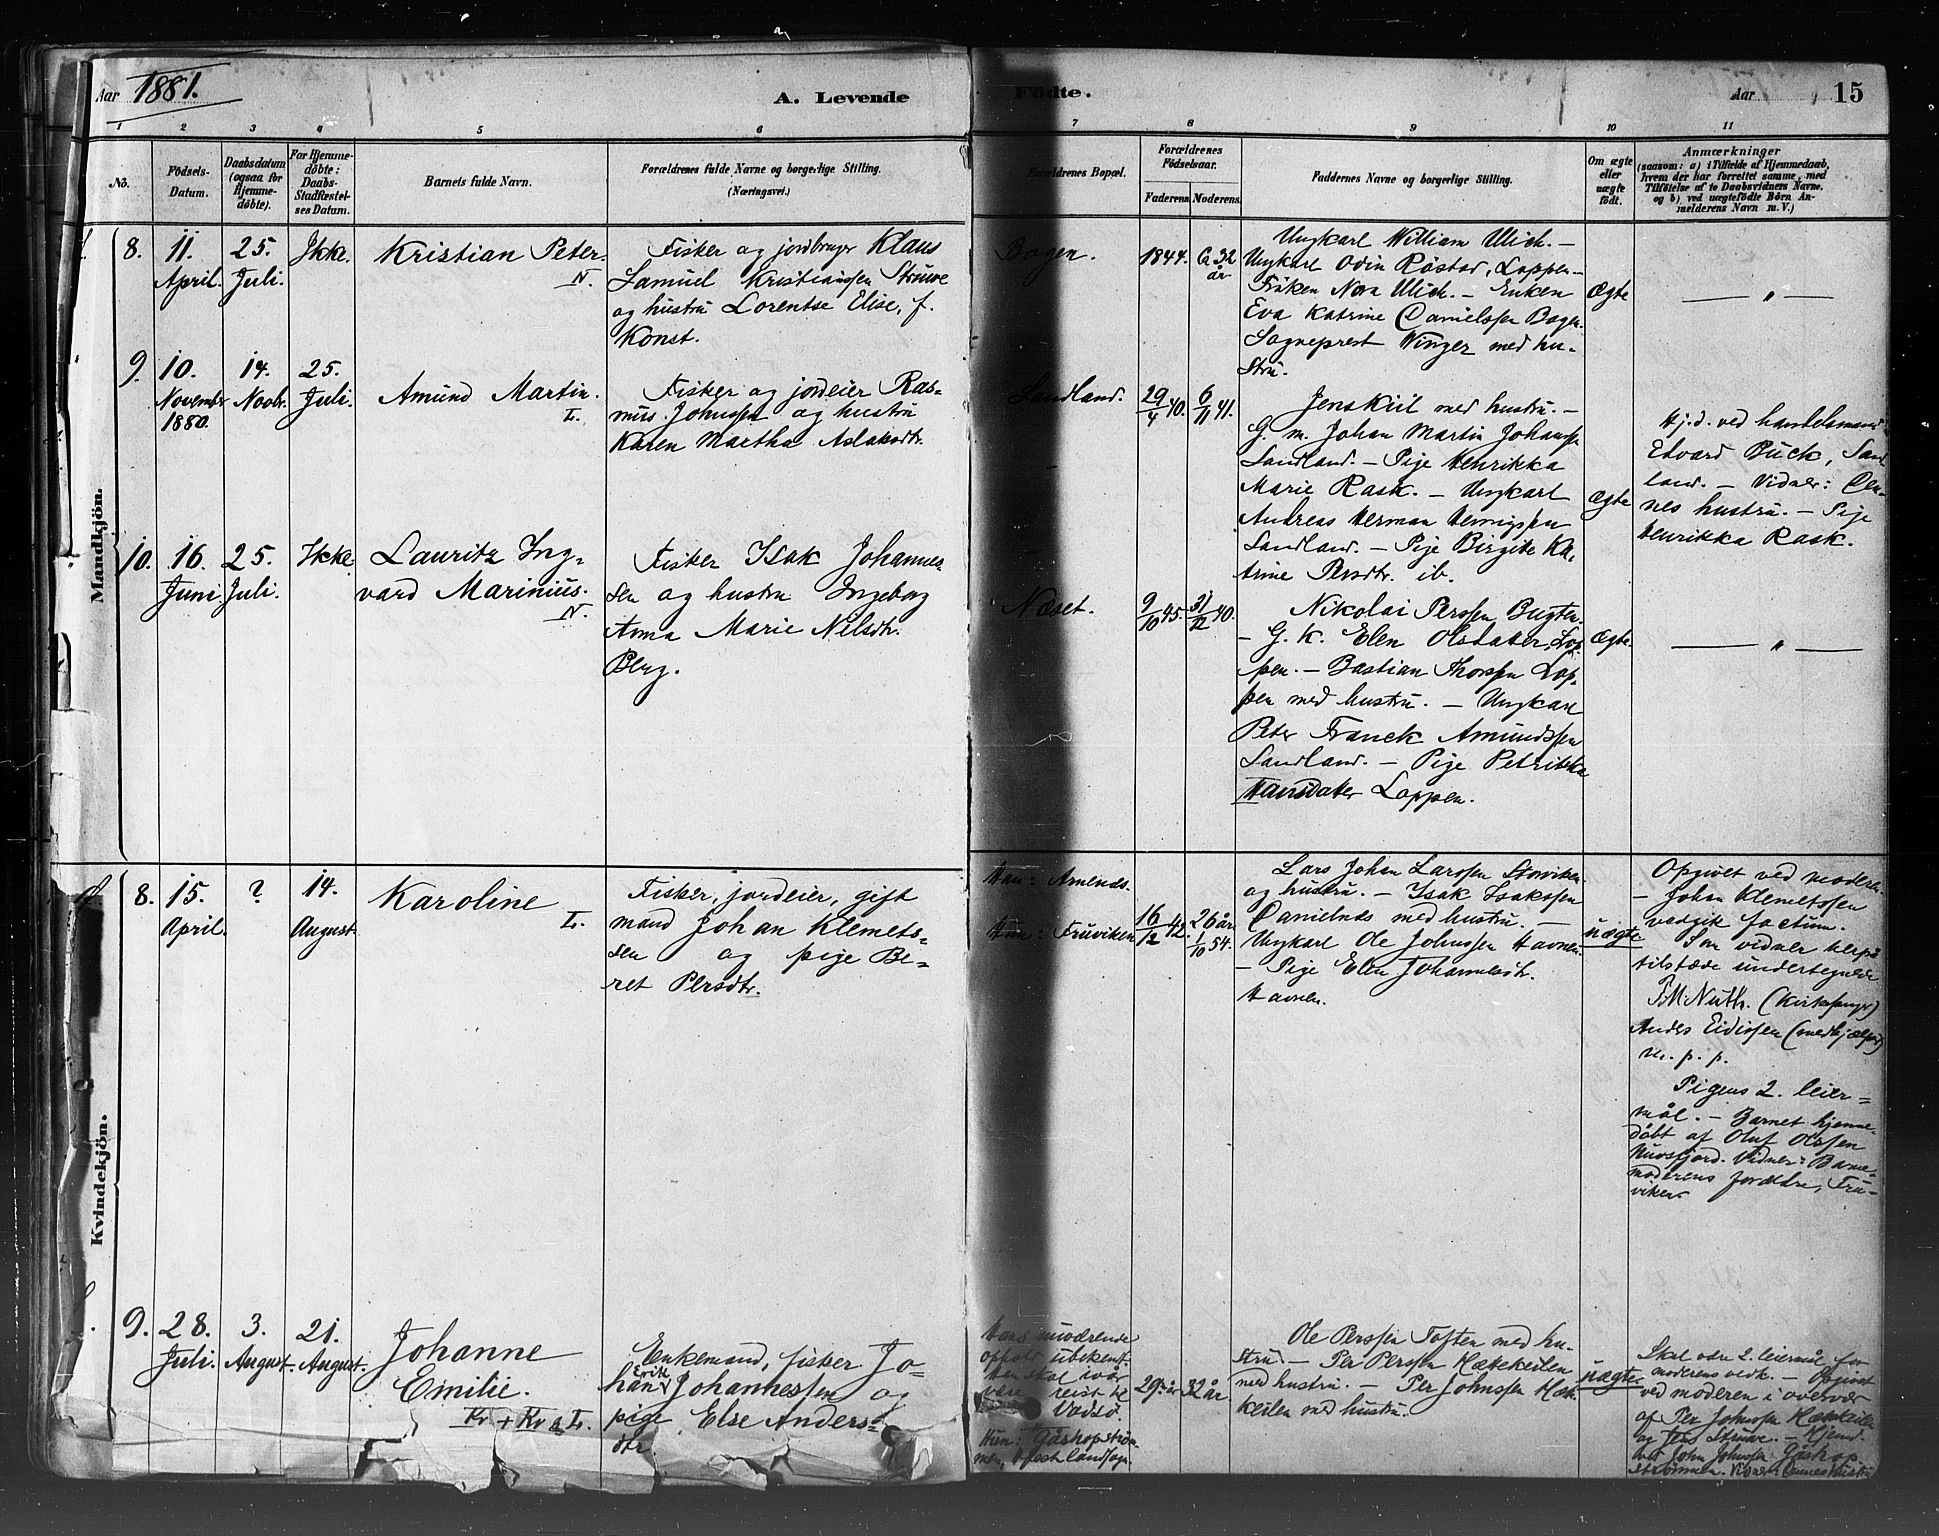 Aar 1881.
A. Levende
Födte.
Aar
15
1 2 3 4 5 6 7 8 9 10 11
No.
Födsels-
Datum.
Daabsdatum
(ogsaa for
Hjemme-
döbte).
For Hjemme-
döbte:
Daabs-
Stadfæstel-
ses Datum.
Barnets fulde Navn.
Forældrenes fulde Navne og borgerlige Stilling.
(Næringsvei.)
Forældrenes Bopæl.
Forældrenes
Födselsaar.
Faderens. Moderens.
Faddernes Navne og borgerlige Stilling.
Om ægte
eller
uægte
födt.
Anmærkninger
(saasom: a) i Tilfælde af Hjemmedaab,
hvem der har forrettet samme, med
Tilföielse af to Daabsvidners Navne,
og b) ved uægtefödte Börn An-
melderens Navn m. V.)
Mandkjön.
8.
11.
April.
25.
Juli.
Ikke.
Kristian Peter.
N.
Fisker og jordbruger Klaus
Samuel Kristianssen Struve
og hustru Lorentse Elise, f.
Konst.
Bogen.
1844.
Ca 32
år
Ungkarl William Ulich. –
Ungkarl Odin Röstad, Loppen –
Fröken Nora Ulich. – Enken
Eva Katrine Danielssen Bogen.
Sogneprest Winger med hu-
stru.
Ægte
— " —
9.
10.
Novembr
1880.
14.
Novbr.
25.
Juli.
Amund Martin.
L.
Fisker og jordeier Ras-
mus Johnssen og hustru
Karen Martha Aslaksdtr.
Sandland.
29/4 40.
6/11 41.
Jens Kiil med hustru. –
G. m. Johan Martin Johanss
Sandland. – Pige Henrikka
Marie Rask. – Ungkarl
Andreas Herman Henrigssen
Sandland. – Pige Birgite Ka-
trine Persdtr. ib.
Ægte
Hj.d. ved handelsmand
Edvard Buck, Sand
land. – Vidner: Den-
nes hustru. – Pige
Henrikka Rask.
10.
16.
Juni
25.
Juli.
Ikke
Lauritz Ing-
vard Marinius.
N.
Fisker Isak Johannes-
sen og hustru Ingeborg
Anna Marie Nilsdtr.
Berg.
Næset.
9/10 45.
31/12 40.
Nikolai Perssen Bugten
– G. k. Elen Olsdater, Lop-
pen. – Bastian Thorssen Lop-
pen med hustru. – Ungkarl
Peter Franck Amundssen
Sandland. – Pige Petrikka
Hansdater Loppen.
Ægte.
— " —
Kvindekjön.
8.
15.
April.
?
14.
August.
Karoline
L.
Fisker, jordeier, gift
mand Johan Klemets-
sen og pige Be-
ret Persdtr.
Han: Arnends.
Hun: Fruviken
16/12 42.
26 år
1/10 54.
Lars Johan Larssen Storviken
og hustru. – Isak Isakssen
Danielnds med hustru. –
Ungkarl Ole Johnssen Havnen
– Pige Elen Johannesdtr.
Havnen.
uægte
Opgivet ved moderen
– Johan Klemetssen
vedgik factum.
Som vidner herpå
tilstede undertegnede
(Kirkesanger)
Anders Eidissen (medhjælper)
m. p. p.
Pigens 2. leier-
mål. – Barnet hjemme-
döbt af Oluf Olssen
Nuvsfjord. Vidner: Barne-
moderens forældre, Fru-
viken
9.
28.
Juli.
3.
August.
21.
August.
Johanne
Emilie.
Kv + Kv a L.
Enkemand, fisker Jo-
han Erik Johannessen og
pige Else Anders-
dtr.
Hans nuværende
ophold ubekendt.
Han skal
være reist til
Vadsö.
Hun: Gåshopströn-
men,
29 år
32 år
Ole Perssen Toften med hu-
stru – Per Perssen Hækkeilen
med hustru. – Per Johnssen Hæk-
keilen med hustru.
uægte
Skal være 2. leiermål for
moderens vedk. – Opgivet
ved moderen i overvær
af Per Johnssen Hækkeilen
og Jens Struve. – Hjemd.
ved John Johnssen Gåshop
strömmen. Vidner: Dennes hustru